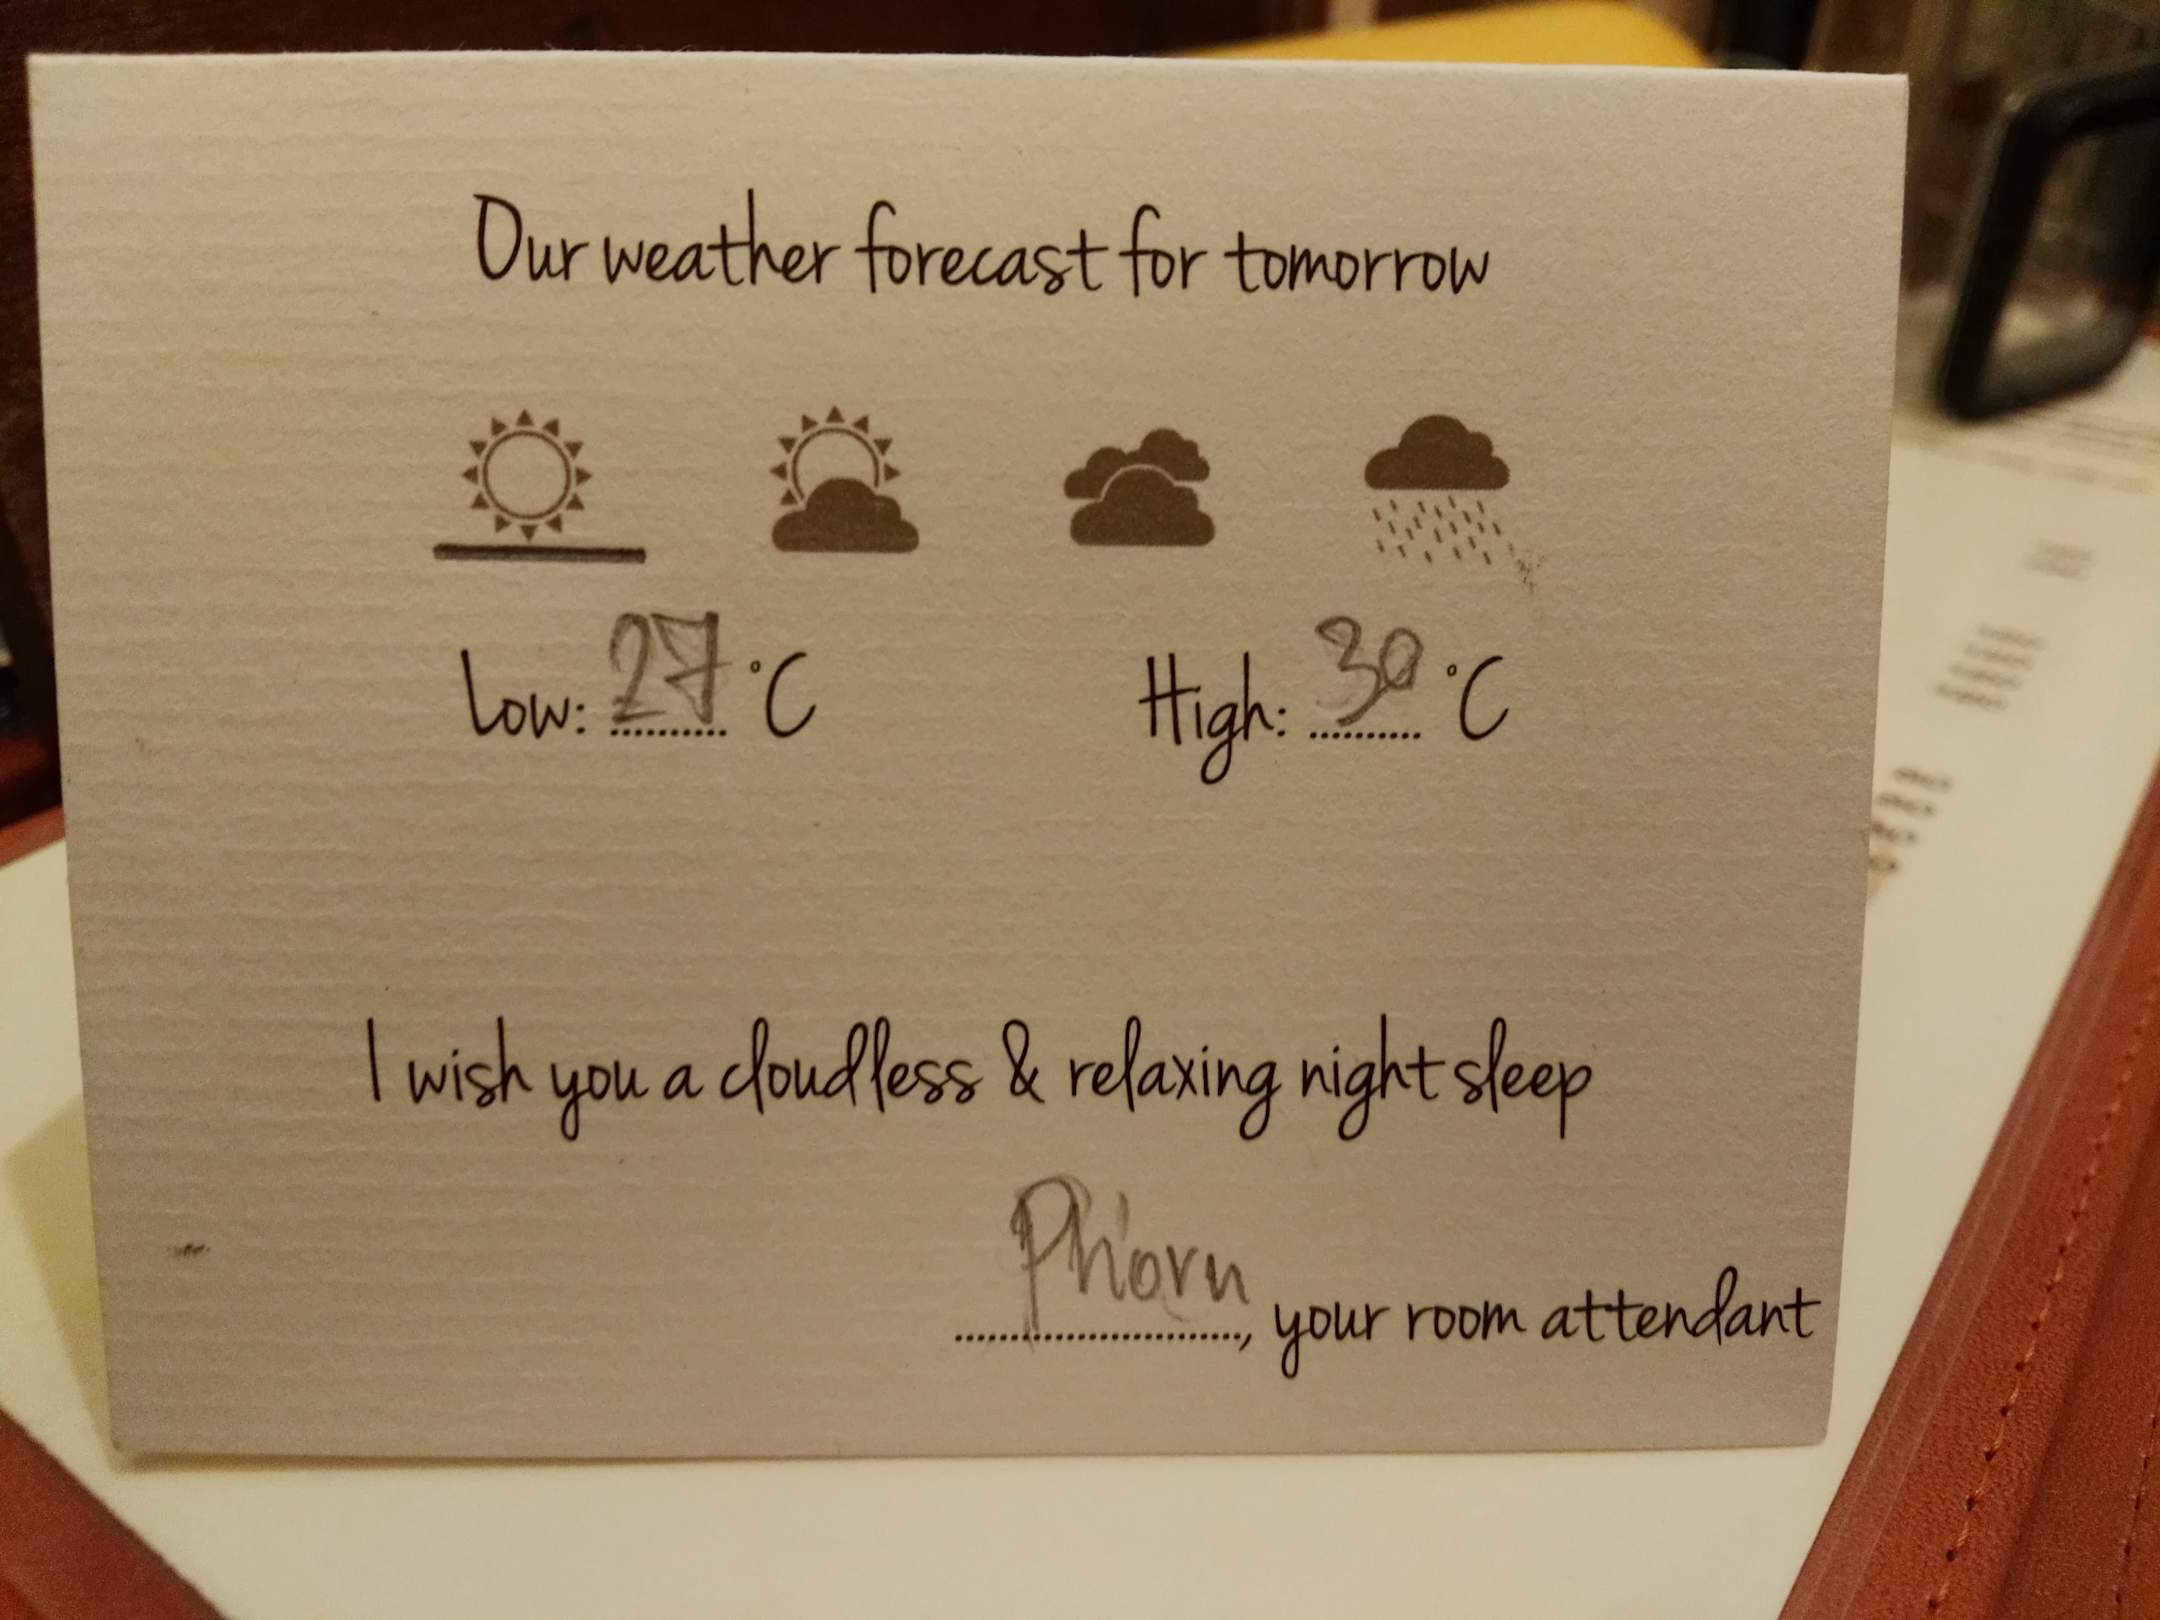 Our weather forecast for tomorrow
Low: 27 °C High: 30 °C
I wish you a cloudless & relaxing night sleep
Phorn, your room attendant